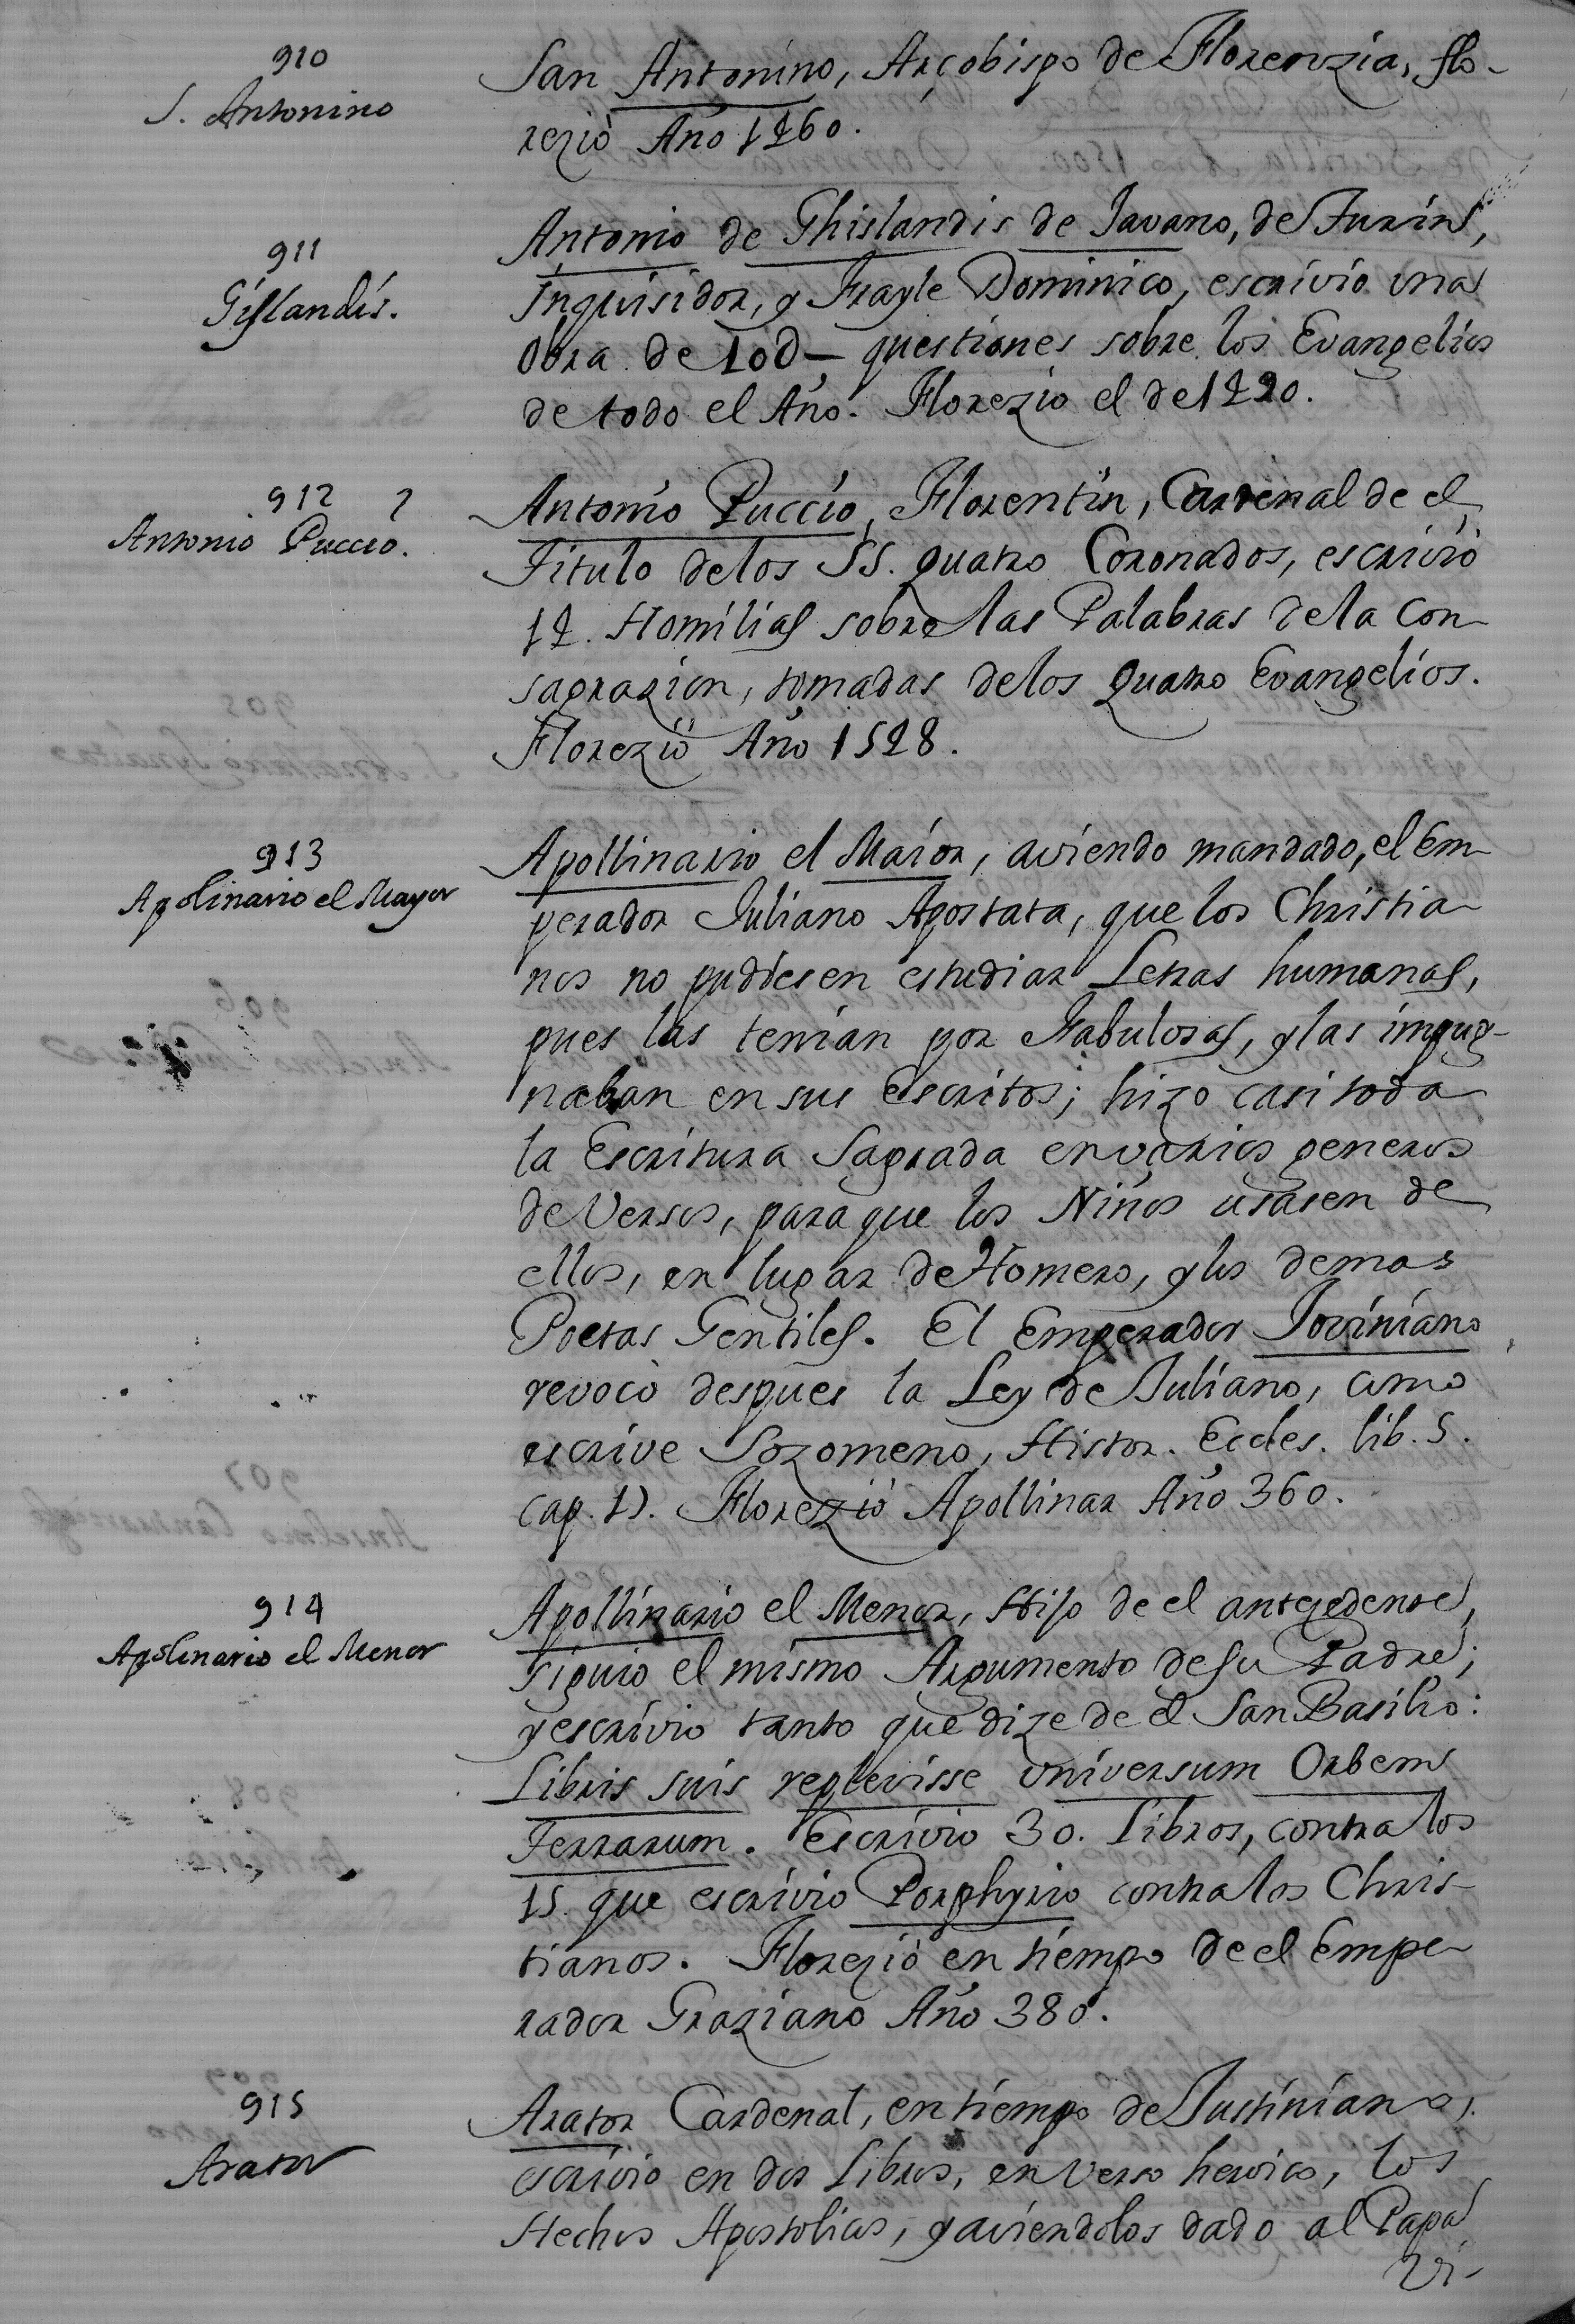 910
S. Antonino
San Antonino, Arçobispo de Florenzia, flo-
rezió Año 1460.
911
Gislandis.
Antonio de Ghislandis de Javano, de Turin,
Inquisidor, y Frayle Dominico, escrivio una
Obra de 10d— questiones sobre los Evangelios
de todo el Año. Florezio el de 1490.
912
Antonio Puccio.
Antonio Puccio, Florentin, Cardenal de el
Titulo de los SS. quatro Coronados, escrivió
14. Homilias sobre las Palabras de la Con-
sagrazion, tomadas de los quatro Evangelios.
Florezió Año 1528.
913
Apolinario el Mayor
Apollinario el Maior, aviendo mandado, el Em-
perador Juliano Apostata, que los Christia-
nos no pudiesen estudiar Letras humanas,
pues las tenian por Fabulosas, y las impug-
naban en sus Escritos; hizo casi toda
la Escritura Sagrada en varios generos
de Versos, para que los Niños usasen de
ellos, en lugar de Homero, y los demas
Poetas Gentiles. El Emperador Joviniano
revocò despues la Ley de Juliano, como
escrive Sozomeno, Histor. Eccles. lib. 5.
cap. 17. Florezió Apollinar Año 360.
914
Apolinario el Menor
Apollinario el Menor, Hijo de el antezedente,
siguio el mismo Argumento de su Padre;
y escrivio tanto que dize de el San Basilio:
Libris suis replevisse universum Orbem
Terrarum. Escrivio 30. Libros, contra los
15. que escrivio Porphyrio contra los Chris-
tianos. Florezió en tiempo de el Empe-
rador Graziano Año 380.
915
Arator
Arator Cardenal, en tiempo de Justiniano,
escrivio en dos Libros, en Verso heroico, los
Hechos Apostolicos, y aviendolos dado al Papa
Vi-